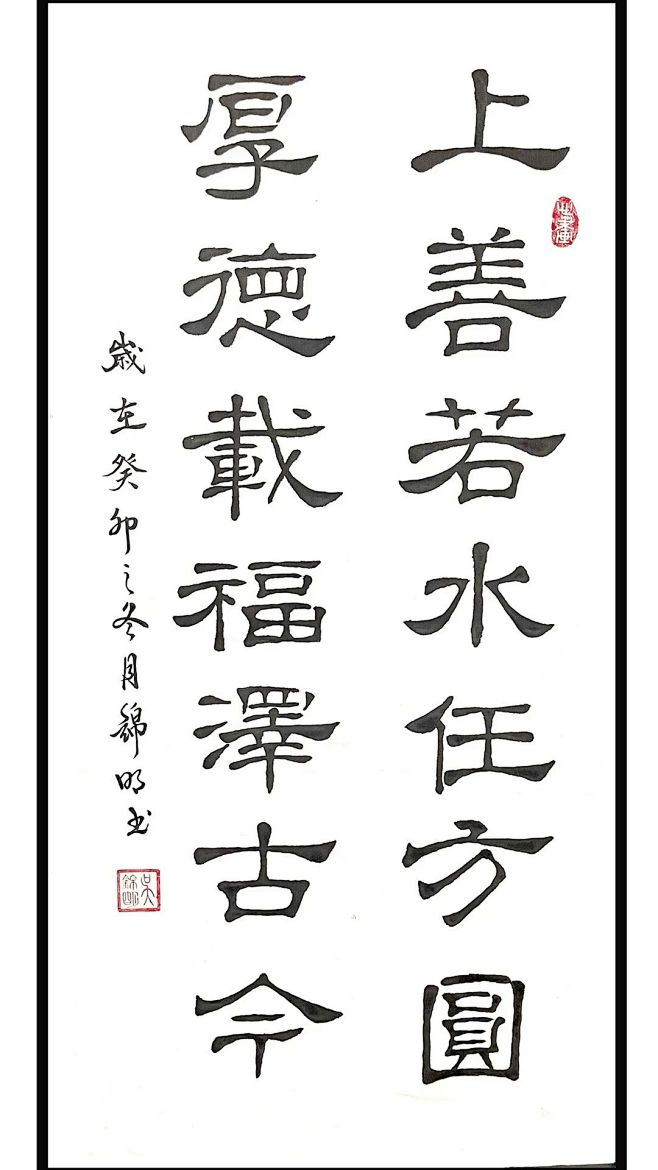 上善若水任方圓
厚德載福澤古今
歲在癸卯之冬月錦明书
吴錦明